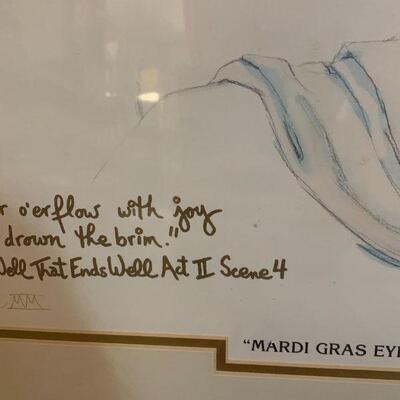 r o'erflow with joy
drown the brim."
Well That Ends Well Act II Scene 4
MM
"MARDI GRAS EYE